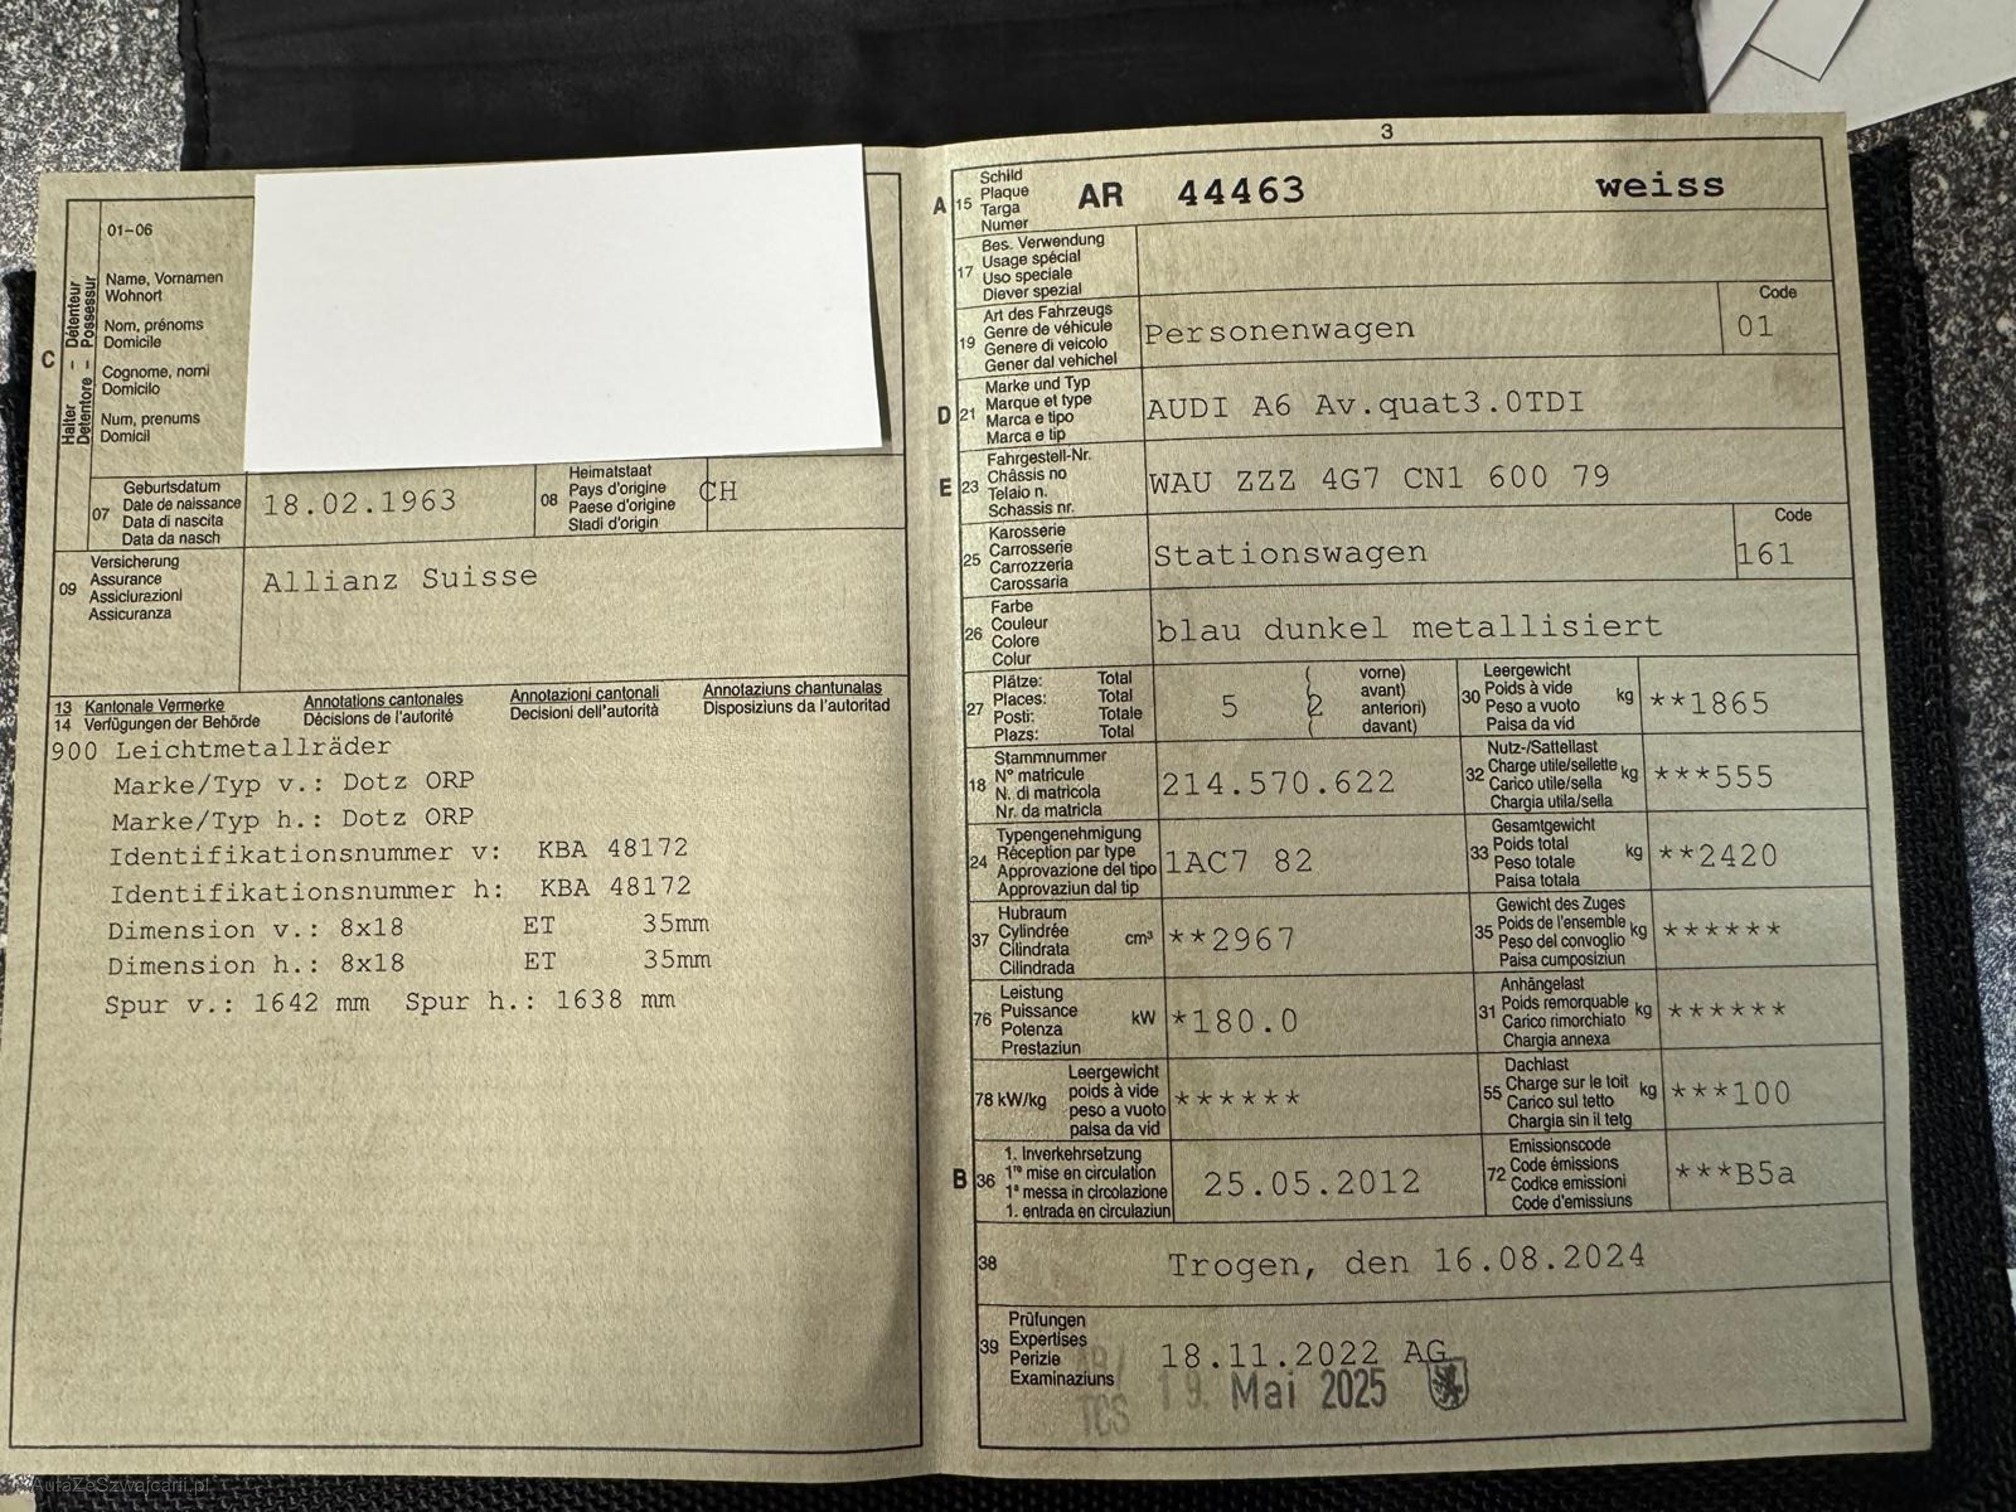 01-06
Halter – Détenteur
Detentore – Possessur
C
Name, Vornamen
Wohnort
Nom, prénoms
Domicile
Cognome, nomi
Domicilo
Num, prenums
Domicil
07
Geburtsdatum
Date de naissance
Data di nascita
Data da nasch
18.02.1963
08
Heimatstaat
Pays d'origine
Paese d'origine
Stadi d'origin
CH
09
Versicherung
Assurance
Assiclurazionl
Assicuranza
Allianz Suisse
13 Kantonale Vermerke Annotations cantonales Annotazioni cantonali Annotaziuns chantunalas
14 Verfügungen der Behörde Décisions de l'autorité Decisioni dell'autorità Disposiziuns da l'autoritad
900 Leichtmetallräder
Marke/Typ v.: Dotz ORP
Marke/Typ h.: Dotz ORP
Identifikationsnummer v: KBA 48172
Identifikationsnummer h: KBA 48172
Dimension v.: 8x18 ET 35mm
Dimension h.: 8x18 ET 35mm
Spur v.: 1642 mm Spur h.: 1638 mm
3
A 15
Schild
Plaque
Targa
Numer
AR 44463 weiss
17
Bes. Verwendung
Usage spécial
Uso speciale
Diever spezial
19
Art des Fahrzeugs
Genre de véhicule
Genere di veicolo
Gener dal vehichel
Personenwagen
Code
01
D 21
Marke und Typ
Marque et type
Marca e tipo
Marca e tip
AUDI A6 Av.quat3.0TDI
E 23
Fahrgestell-Nr.
Châssis no
Telaio n.
Schassis nr.
WAU ZZZ 4G7 CN1 600 79
25
Karosserie
Carrosserie
Carrozzeria
Carossaria
Stationswagen
Code
161
26
Farbe
Couleur
Colore
Colur
blau dunkel metallisiert
27
Plätze: Total
Places: Total
Posti: Totale
Plazs: Total
5 ( 2
vorne)
avant)
anteriori)
davant)
30
Leergewicht
Poids à vide
Peso a vuoto
Paisa da vid
kg **1865
18
Stammnummer
N° matricule
N. di matricola
Nr. da matricla
214.570.622
32
Nutz-/Sattellast
Charge utile/sellette
Carico utile/sella
Chargia utila/sella
kg ***555
24
Typengenehmigung
Réception par type
Approvazione del tipo
Approvaziun dal tip
1AC7 82
33
Gesamtgewicht
Poids total
Peso totale
Paisa totala
kg **2420
37
Hubraum
Cylindrée
Cilindrata
Cilindrada
cm³ **2967
35
Gewicht des Zuges
Poids de l'ensemble
Peso del convoglio
Paisa cumposiziun
kg ******
76
Leistung
Puissance
Potenza
Prestaziun
kW *180.0
31
Anhängelast
Poids remorquable
Carico rimorchiato
Chargia annexa
kg ******
78 kW/kg
Leergewicht
poids à vide
peso a vuoto
paisa da vid
******
55
Dachlast
Charge sur le toit
Carico sul tetto
Chargia sin il tetg
kg ***100
B 36
1. Inverkehrsetzung
1re mise en circulation
1a messa in circolazione
1. entrada en circulaziun
25.05.2012
72
Emissionscode
Code émissions
Codice emissioni
Code d'emissiuns
***B5a
38
Trogen, den 16.08.2024
39
Prüfungen
Expertises
Perizie
Examinaziuns
18.11.2022 AG
TCS 19. Mai 2025
AutaZeSzwajcarii.pl